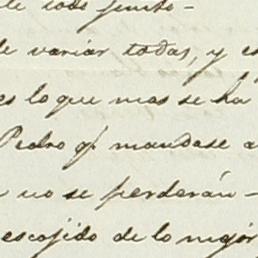 todo junto-
de variar todas, y es
es lo que mas se ha
Pedro qe. mandase a
no se perderán-
escojido de lo mejor